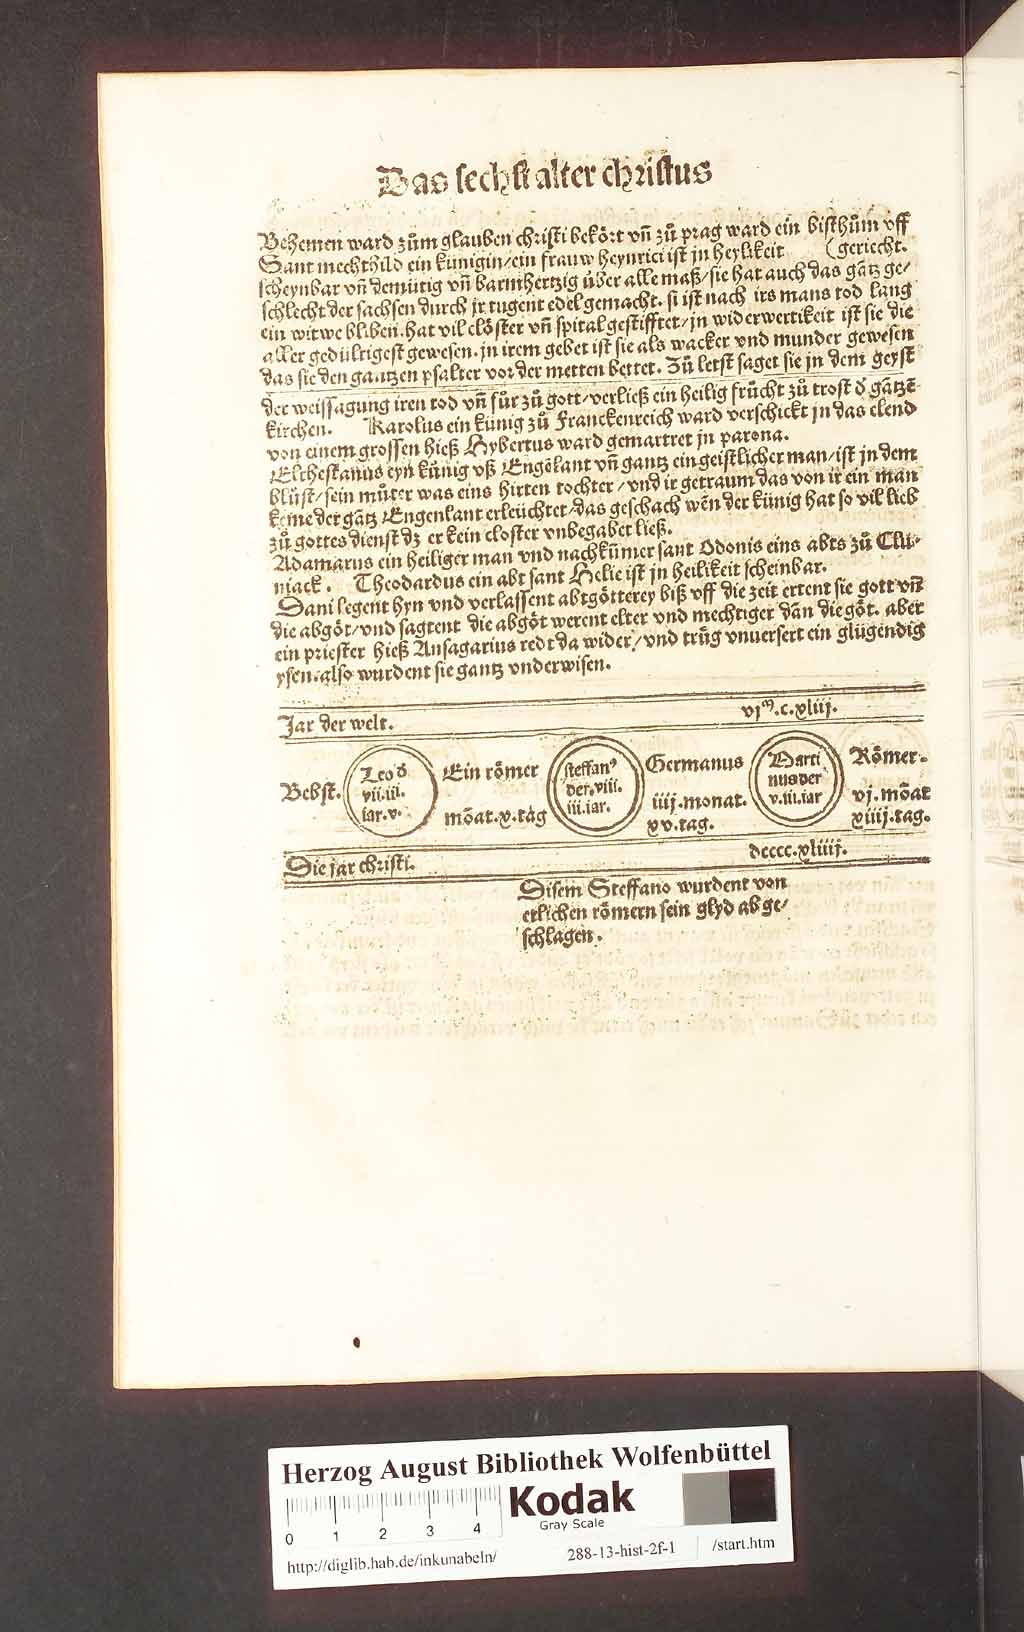 Das sechst alter christus
Behemen ward zům glauben christi bekört vñ zů prag ward ein bisthům vff
Sant mechthild ein künigin/ein frauw heynrici ist jn heylikeit (gericht.
scheynbar vñ demütig vñ barmhertzig über alle maß/sie hat auch das gãtz ge/
schlecht der sachsen durch jr tugent edel gemacht. si ist nach irs mans tod lang
ein witwe bliben.hat vil clöster vñ spital gestifftet/jn widerwertikeit ist sie die
aller gedültigest gewesen.jn irem gebet ist sie als wacker vnd munder gewesen
das sie den gantzen psalter vor der metten bettet. Zů letst saget sie jn dem geyst
der weissagung iren tod vñ für zů gott/verließ ein heilig frücht zů trost d' gãtzẽ
kirchen. Karolus ein künig zů Franckenreich ward verschickt jn das elend
von einem grossen hieß Hybertus ward gemartret jn parona.
Elchestanus eyn künig vß Engelant vñ gantz ein geistlicher man/ist jn dem
blüst/sein můter was eins hirten tochter/vnd ir getraum das von ir ein man
keme der gãtz Engenlant erleüchtet/das geschach wẽn der künig hat so vil lieb
zů gottes dienst dz er kein closter vnbegabet ließ.
Adamarus ein heiliger man vnd nachkümer sant Odonis eins abts zů Clu-
niack. Theodardus ein abt sant Helie ist jn heilikeit scheinbar.
Dani legent hyn vnd verlassent abtgötterey biß vff die zeit ertent sie gott vñ
die abgöt/vnd sagtent die abgöt werent elter vnd mechtiger dan die göt. aber
ein priester hieß Ansagarius redt da wider/vnd trůg vnuersert ein glügendig
ysen.also wurdent sie gantz vnderwisen.
Jar der welt. vjᵐ.c.xliij.
Bebst. Leo d' vii.iii. iar.v. Ein römer mõat.x.tag steffanꝰ der.viii. iii.iar. Germanus iiij.monat. xv.tag. Marti nus der v.iii.iar Römer. vj.mõat xiiij.tag.
Die jar christi. dcccc.xliiij.
Disem Steffano wurdent von
etlichen römern sein glyd abge/
schlagen.
Herzog August Bibliothek Wolfenbüttel
0 1 2 3 4
Kodak
Gray Scale
http://diglib.hab.de/inkunabeln/ 288-13-hist-2f-1 /start.htm